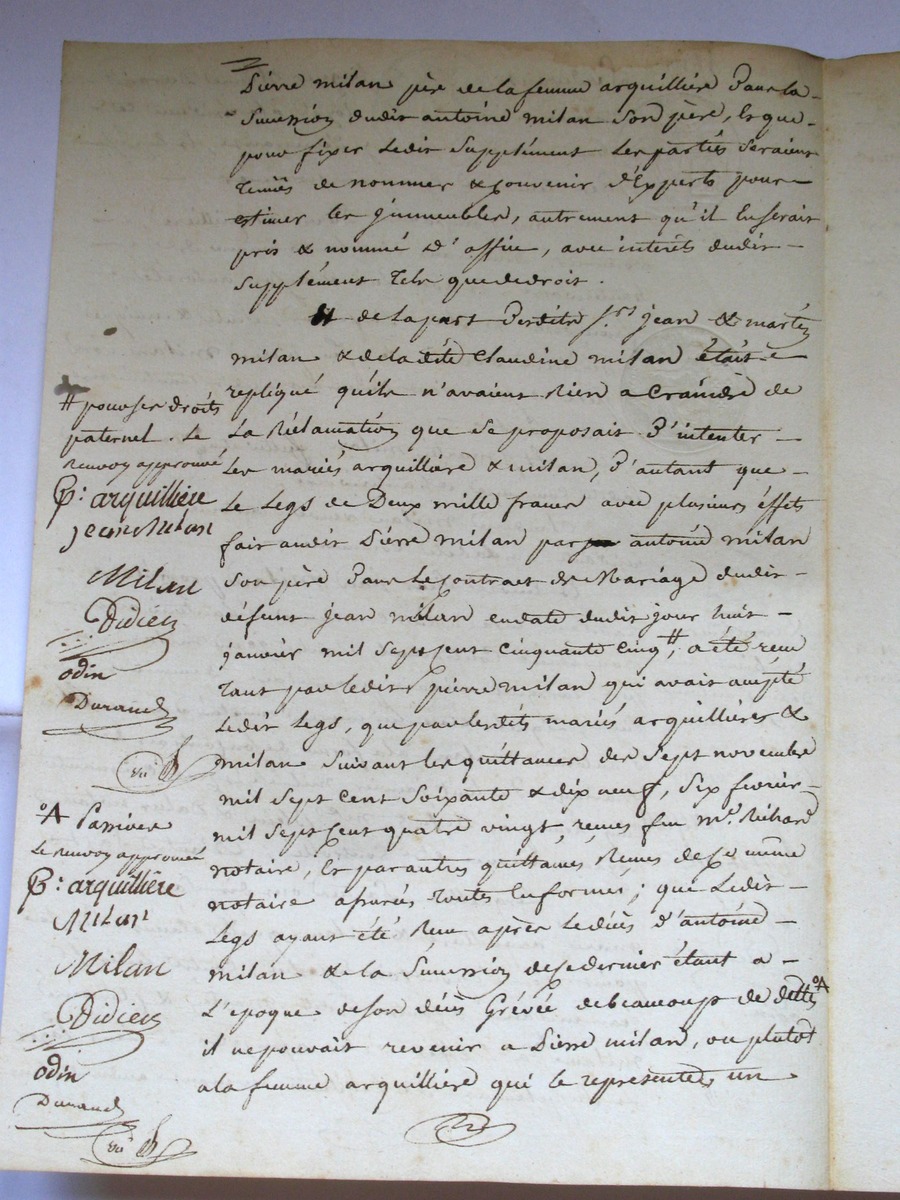 Pierre milan père de la femme arquillière Dans la
Succession dudit antoine milan Son père, Et que
pour fixer Ledit Supplément Les parties Seraient
Tenues de nommer & Convenir d'Experts pour
estimer les jmmeubles, autrement qu'il En serait
pris & nommé d'office, avec intérêts dudit
Supplément Tels que de droit.
Et de la part Desdits Srs jean &
milan & de la dite Claudine milan était
repliqué qu'ils n'avaient Rien a Craindre de
La Réclamation que Se proposait D'intenter
Les mariés arquillière & milan, D'autant que
Le Legs de Deux mille francs avec plusieurs éffets
fait audit Pierre milan par antoine milan
Son père Dans Le Contrat de Mariage dudit
défunt jean milan en date dudit jour huit
janvier mil Sept Cent Cinquante Cinq #, a été reçu
Tant par Ledit pierre milan qui avait accepté
Ledit Legs, que par lesdits mariés arquillières &
milan Suivant les quittances des Sept novembre
mil Sept Cent Soixante & dix neuf, Six fevrier
mil Sept Cent quatre vingt, reçues feu Me. Richard
notaire, Et par autres quittances Reçues de Ce même
notaire Toutes En formes; que Ledit
Legs ayant été Reçu après Le décès d'antoine
milan & de la Succession de Ce dernier étant a
L'epoque de Son décès Grévée de beaucoup de dettes °A
il ne pouvait revenir a Pierre milan, ou plutôt
a la femme arquillière qui le représente un
# pour ses droits
paternel. Le
Renvoy approuvé
P: arquillière
jean Milan
Milan
Didier
odin
Durand
°A Passives
Le Renvoy approuvé
P: arquillière
Milan
Milan
Didier
odin
Durand